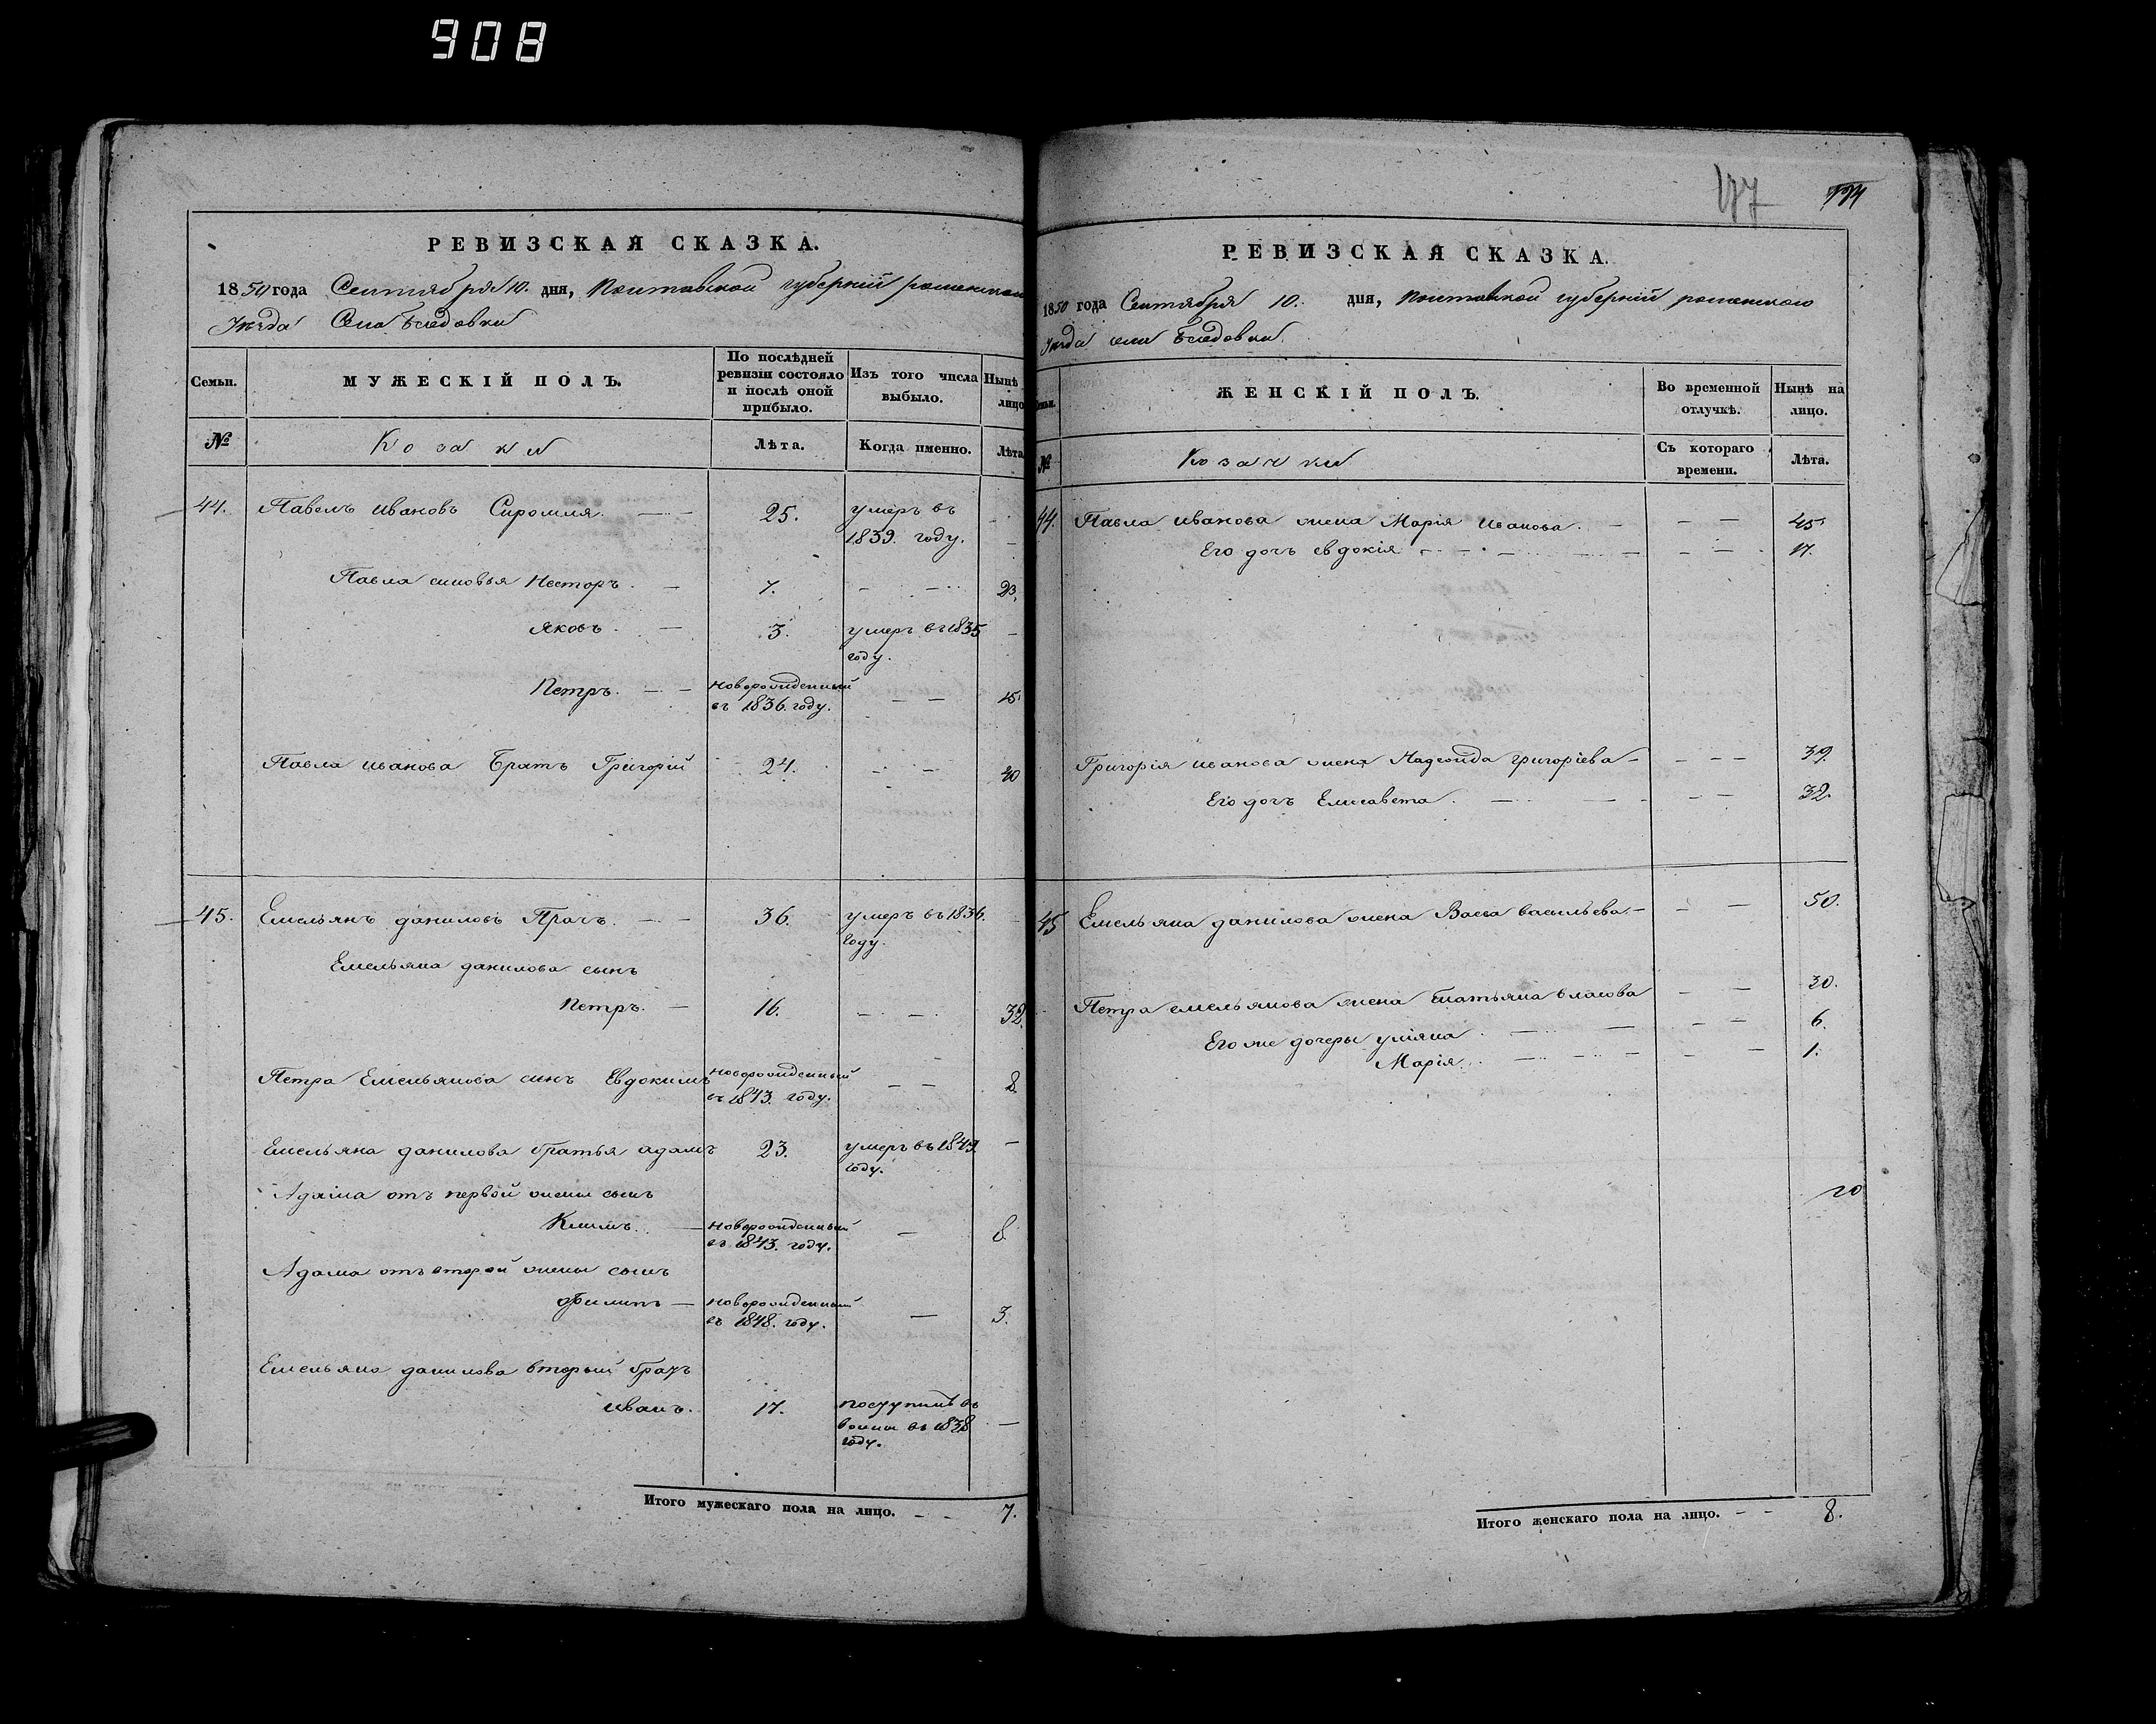 908
РЕВИЗСКАЯ СКАЗКА.
1850 года Сентября 10. дня, Полтавской губернии роменского
Уезда Села Беседовки
Семьи. МУЖЕСКІЙ ПОЛЪ. По послѣдней ревизіи состояло и послѣ оной прибыло. Изъ того числа выбыло. Нынѣ лицо
№ Козаки Лѣта. Когда именно. Лѣта
44. Павелъ ивановъ Сиромля. 25. умеръ въ 1839. году. —
Павла сыновья Несторъ. — 7. — — 23.
яковъ. — 3. умеръ въ 1835 году. —
Петръ. — — новорожденный въ 1836. году. — — 15.
Павла иванова Братъ Григорій 24. — — 40
45. Емельянъ даниловъ Прачъ. — — 36. умеръ въ 1836. году. —
Емельяна данилова сынъ
Петръ. — 16. — — 32.
Петра Емельянова сынъ Евдокимъ новорожденный въ 1843. году. — — 8
Емельяна данилова братья адамъ 23. умеръ въ 1849. году. —
Адама отъ первой жены сынъ
Климъ. — новорожденный въ 1843. году. — 8.
Адама отъ второй жены сынъ
Филипъ — новорожденный въ 1848. году. — 3.
Емельяна данилова вторый братъ
иванъ. 17. поступилъ въ воины въ 1838 году. —
Итого мужескаго пола на лицо. — — 7.
177
РЕВИЗСКАЯ СКАЗКА.
1850 года Сентября 10. дня, Полтавской губерніи роменского
Уезда села Беседовки.
Семьи. ЖЕНСКІЙ ПОЛЪ. Во временной отлучкѣ. Нынѣ на лицо.
№ Козачки Съ котораго времени. Лѣта.
44. Павла иванова жена Марія иванова. — — — 45
Его дочь евдокія — — — — — 17.
Григорія иванова жена Надежда григоріева — — — — 39.
Его дочь Елисавета. — — — — 32.
45 Емельяна данилова жена Васса васильева. — — — 50.
Петра емельянова жена татьяна власова — — 30.
Его же дочеры уліяна — — — — 6.
Марія. — — — — — 1.
20
Итого женскаго пола на лицо. — — 8.